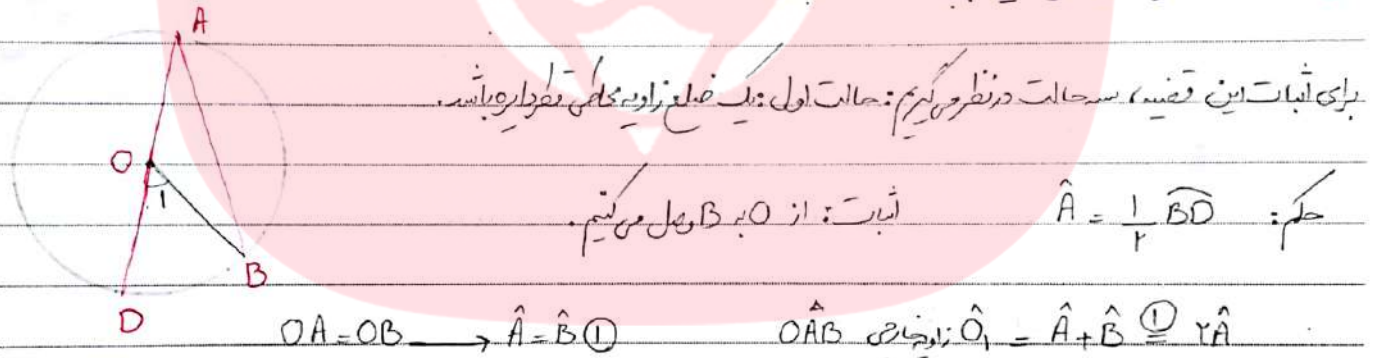 برای اثبات این قضیه، سه حالت در نظر می‌گیریم: حالت اول: یک ضلع زاویه محاطی قطر دایره باشد.
حکم: Â = ۱/۲ B͡D اثبات: از O به B وصل می‌کنیم.
OA = OB ⟶ Â = B̂ ① OÂB زاویه خارجی: Ô₁ = Â + B̂ ①= ۲Â
A
O
۱
B
D